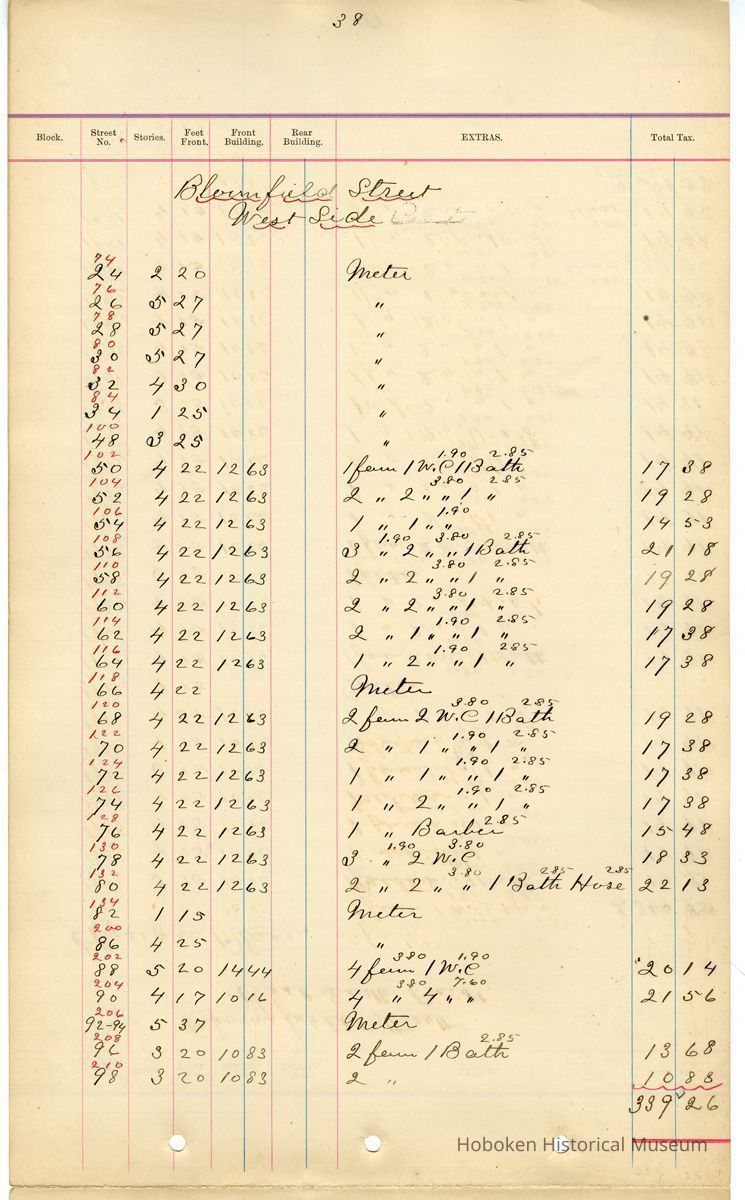 38
Block. Street No. Stories. Feet Front. Front Building. Rear Building. EXTRAS. Total Tax.
Bloomfield Street
West Side
74
24 2 20 Meter
76
26 5 27 "
78
28 5 27 "
80
30 5 27 "
82
32 4 30 "
84
34 1 25 "
100
48 3 25 "
102 1.90 2.85
50 4 22 12 63 1 fem 1 W.C 1 Bath 17 38
104 3.80 2.85
52 4 22 12 63 2 " 2 " " 1 " 19 28
106 1.90
54 4 22 12 63 1 " 1 " " 14 53
108 1.90 3.80 2.85
56 4 22 12 63 3 " 2 " " 1 Bath 21 18
110 3.80 2.85
58 4 22 12 63 2 " 2 " " 1 " 19 28
112 3.80 2.85
60 4 22 12 63 2 " 2 " " 1 " 19 28
114 1.90 2.85
62 4 22 12 63 2 " 1 " " 1 " 17 38
116 1.90 285
64 4 22 12 63 1 " 2 " " 1 " 17 38
118
66 4 22 Meter
120 3.80 2.85
68 4 22 12 63 2 fem 2 W.C 1 Bath 19 28
122 1.90 2.85
70 4 22 12 63 2 " 1 " " 1 " 17 38
124 1.90 2.85
72 4 22 12 63 1 " 1 " " 1 " 17 38
126 1.90 2.85
74 4 22 12 63 1 " 2 " " 1 " 17 38
128 2.85
76 4 22 12 63 1 " Barber 15 48
130 1.90 3.80
78 4 22 12 63 3 " 2 W.C 18 33
132 3.80 285 2.85
80 4 22 12 63 2 " 2 " " 1 Bath Hose 22 13
134
82 1 15 Meter
200
86 4 25 "
202 380 1.90
88 5 20 14 44 4 fem 1 W.C 20 14
204 380 7.60
90 4 17 10 16 4 " 4 " " 21 56
206
92-94 5 37 Meter
208 2.85
96 3 20 10 83 2 fem 1 Bath 13 68
210
98 3 20 10 83 2 " 10 83
339 26
Hoboken Historical Museum